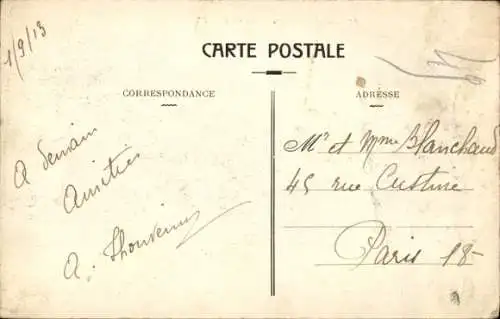 1/9/13
CARTE POSTALE
CORRESPONDANCE
ADRESSE
A demain
Amitiés
A. Thouvenin
Mr et Mme Blanchaud
45 rue Custine
Paris 18